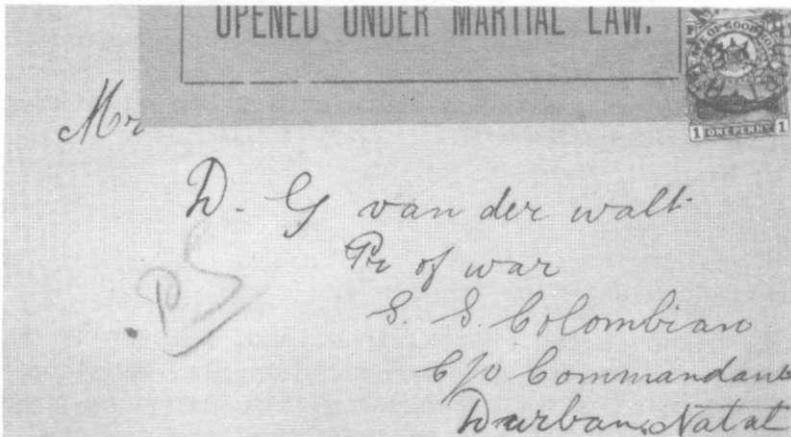 OPENED UNDER MARTIAL LAW.
OF GOOD HO
1 ONE PENNY 1
Mr
D. G van der walt
Pr of war
S. S. Colombian
C/o Commandant
Durban, Natal
PS